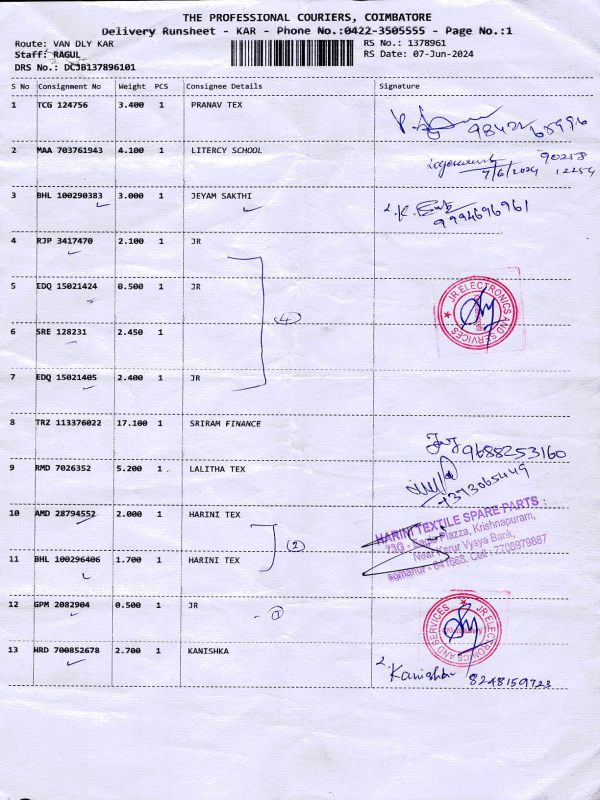 THE PROFESSIONAL COURIERS, COIMBATORE
Delivery Runsheet - KAR - Phone No.:0422-3505555 - Page No.:1
Route: VAN DLY KAR RS No.: 1378961
Staff: RAGUL RS Date: 07-Jun-2024
DRS No.: DCJB137896101
S No Consignment No Weight PCS Consignee Details Signature
1 TCG 124756 3.400 1 PRANAV TEX
2 MAA 703761943 4.100 1 LITERCY SCHOOL 90258
7/6/2024 12254
3 BHL 100290383 3.000 1 JEYAM SAKTHI
9994696961
4 RJP 3417470 2.100 1 JR
5 EDQ 15021424 0.500 1 JR
JR ELECTRONICS AND SERVICES
4
6 SRE 128231 2.450 1
7 EDQ 15021405 2.400 1 JR
8 TRZ 113376022 17.100 1 SRIRAM FINANCE
9688253160
9 RMD 7026352 5.200 1 LALITHA TEX
10 AMD 28794552 2.000 1 HARINI TEX
HARINI TEXTILE SPARE PARTS
Plazza, Krishnapuram,
2 Near Karur Vysya Bank,
11 BHL 100296406 1.700 1 HARINI TEX
somanur - 641668. Cell: 7708979887
12 GPM 2082904 0.500 1 JR
1 JR ELECTRONICS AND SERVICES
13 HRD 700852678 2.700 1 KANISHKA
Kanishka 8248159723